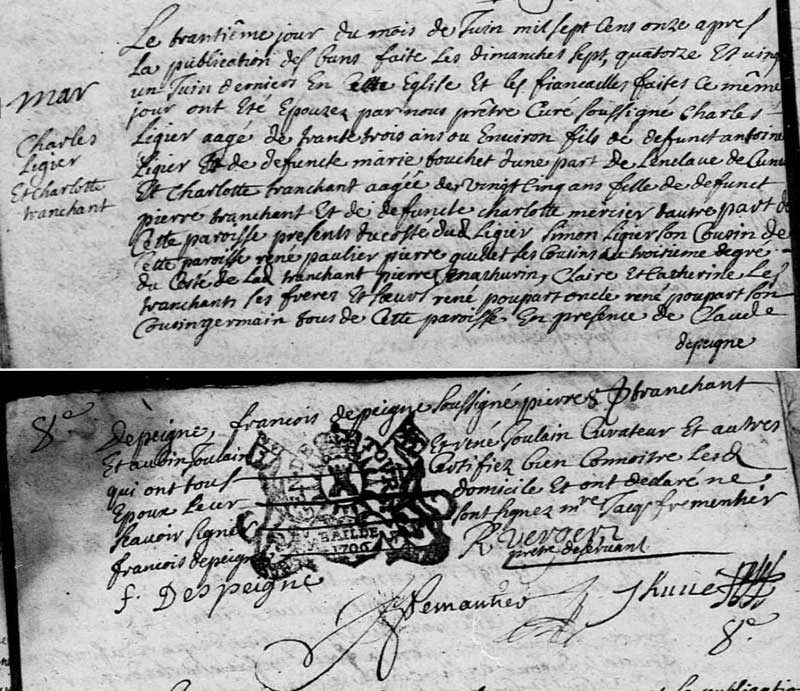 Le trantiême jour du mois de Juin mil sept cens onze apres
la publication des bans faite les dimanches sept, quatorze Et vingt
un Juin derniers En cette Eglise Et les fiancailles faites ce même
mar
jour ont Eté Epousez par nous prêtre Curé soussigné Charles
Charles
Ligier
Et Charlotte
tranchant
Ligier aagé de trante trois ans ou Environ fils de defunct antoine
Ligier Et de defuncte marie bouchet d'une part de Lenclave de
Et Charlotte tranchant aagée de vingt cinq ans fille de defunct
pierre tranchant Et de defuncte charlotte mercier d'autre part de
Cette paroisse presents du coste dud Ligier Simon Ligier son Cousin de
Cette paroisse rené paulier pierre ses Cousins au troisième degré
du Costé de Lad tranchant pierre, mathurin, Claire Et Catherine Les
tranchants ses freres et sœurs rené poupart oncle rené poupart son
Cousin germain tous de Cette paroisse En presence de Claude
depeigne
8e
depeigne, francois depeigne soussigné pierre tranchant
Et aubin Joulain Et rené Joulain Curateur Et autres
qui ont tous Certifiez bien Connoitre Lesd
Epoux Leur domicile Et ont declaré ne
scavoir signer sont signez mre Jacq frementier
BAILDE
1706
francois depeigne R Verger
prêtre deservant
f. Despeigne
8e